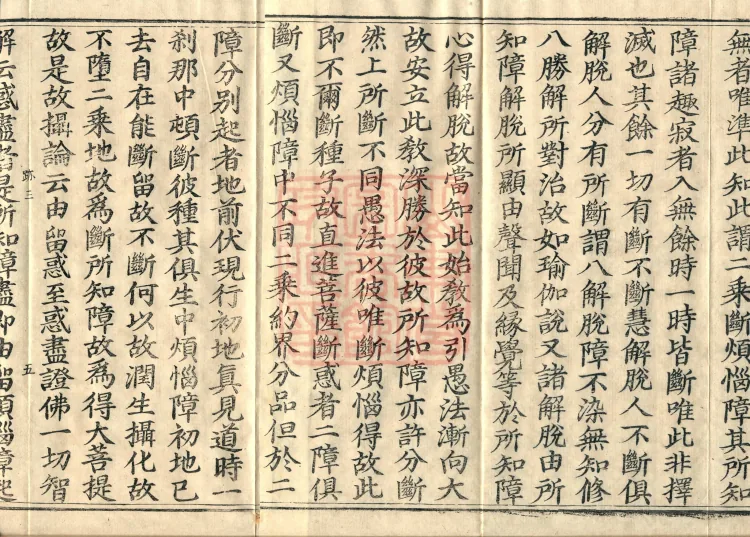 無者唯準此知此謂二乘斷所知
障諸趣寂者入無餘時一時皆斷唯此非擇
滅也其餘一切有斷不斷慧解脫人不斷俱
解脫人分有所斷謂八解脫障不染無知修
八勝解所對治故如瑜伽說又諸解脫由所
知障解脫所顯由聲聞及緣覺等於所知障
心得解脫故當知此始教為引愚法漸向大
故安立此教深勝於彼故所知障亦許分斷
然上所斷不同愚法以彼唯斷煩惱得故此
即不爾斷種子故直進菩薩斷惑者二障俱
斷又煩惱障中不同二乘約界分品但於二
障分別起者地前伏現行初地真見道時一
剎那中頓斷彼種其俱生中煩惱障初地已
去自在能斷留故不斷何以故潤生攝化故
不墮二乘地故為斷所知障故為得大菩提
故是故攝論云由留惑至惑盡證佛一切智
跡三
五
解云惑盡者是所知障盡即由留煩惱障起